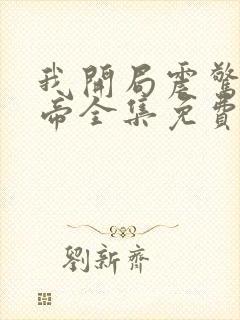 我開局震驚
帝全集免費
劉新齊